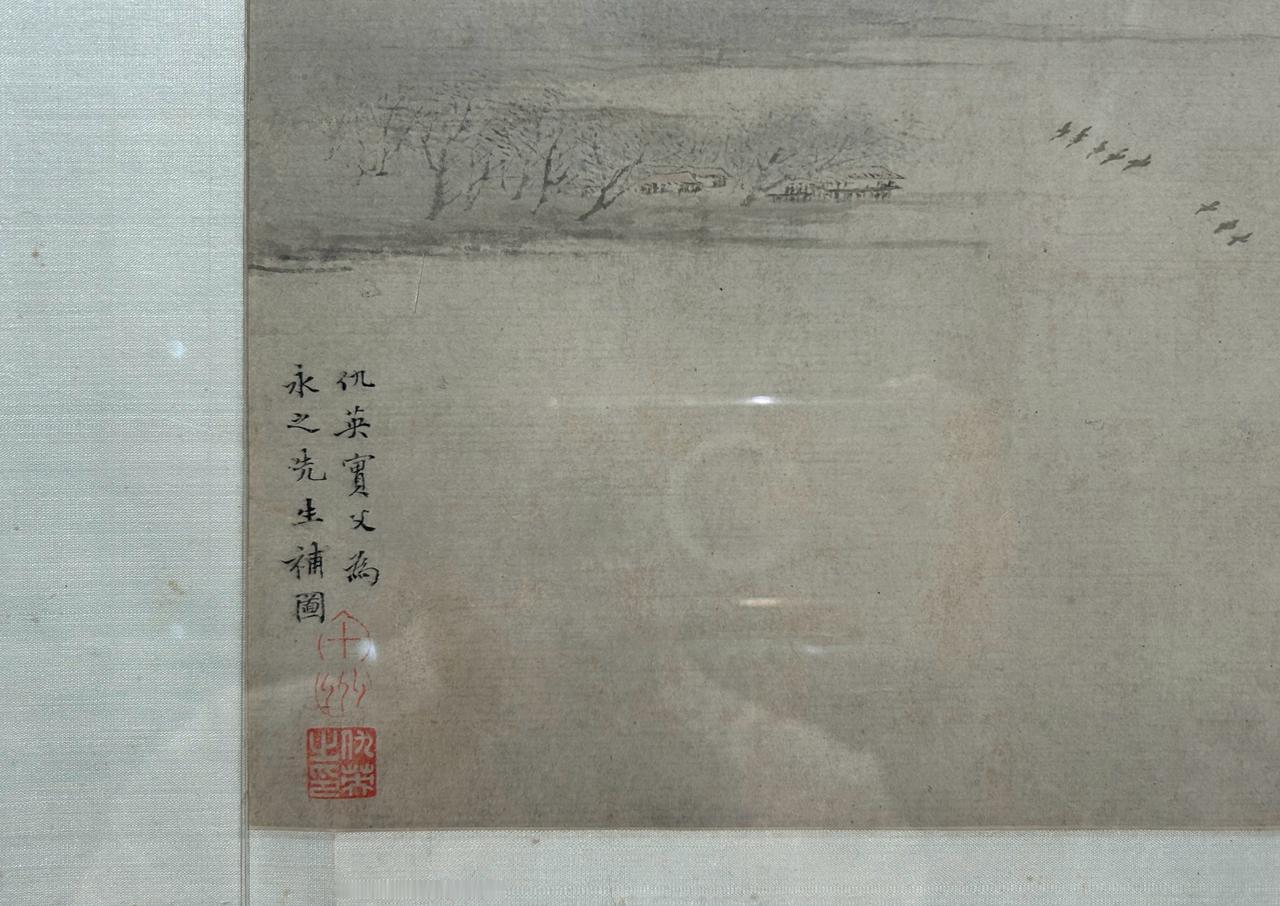 仇英實父為
永之先生補圖
十洲
仇英之印